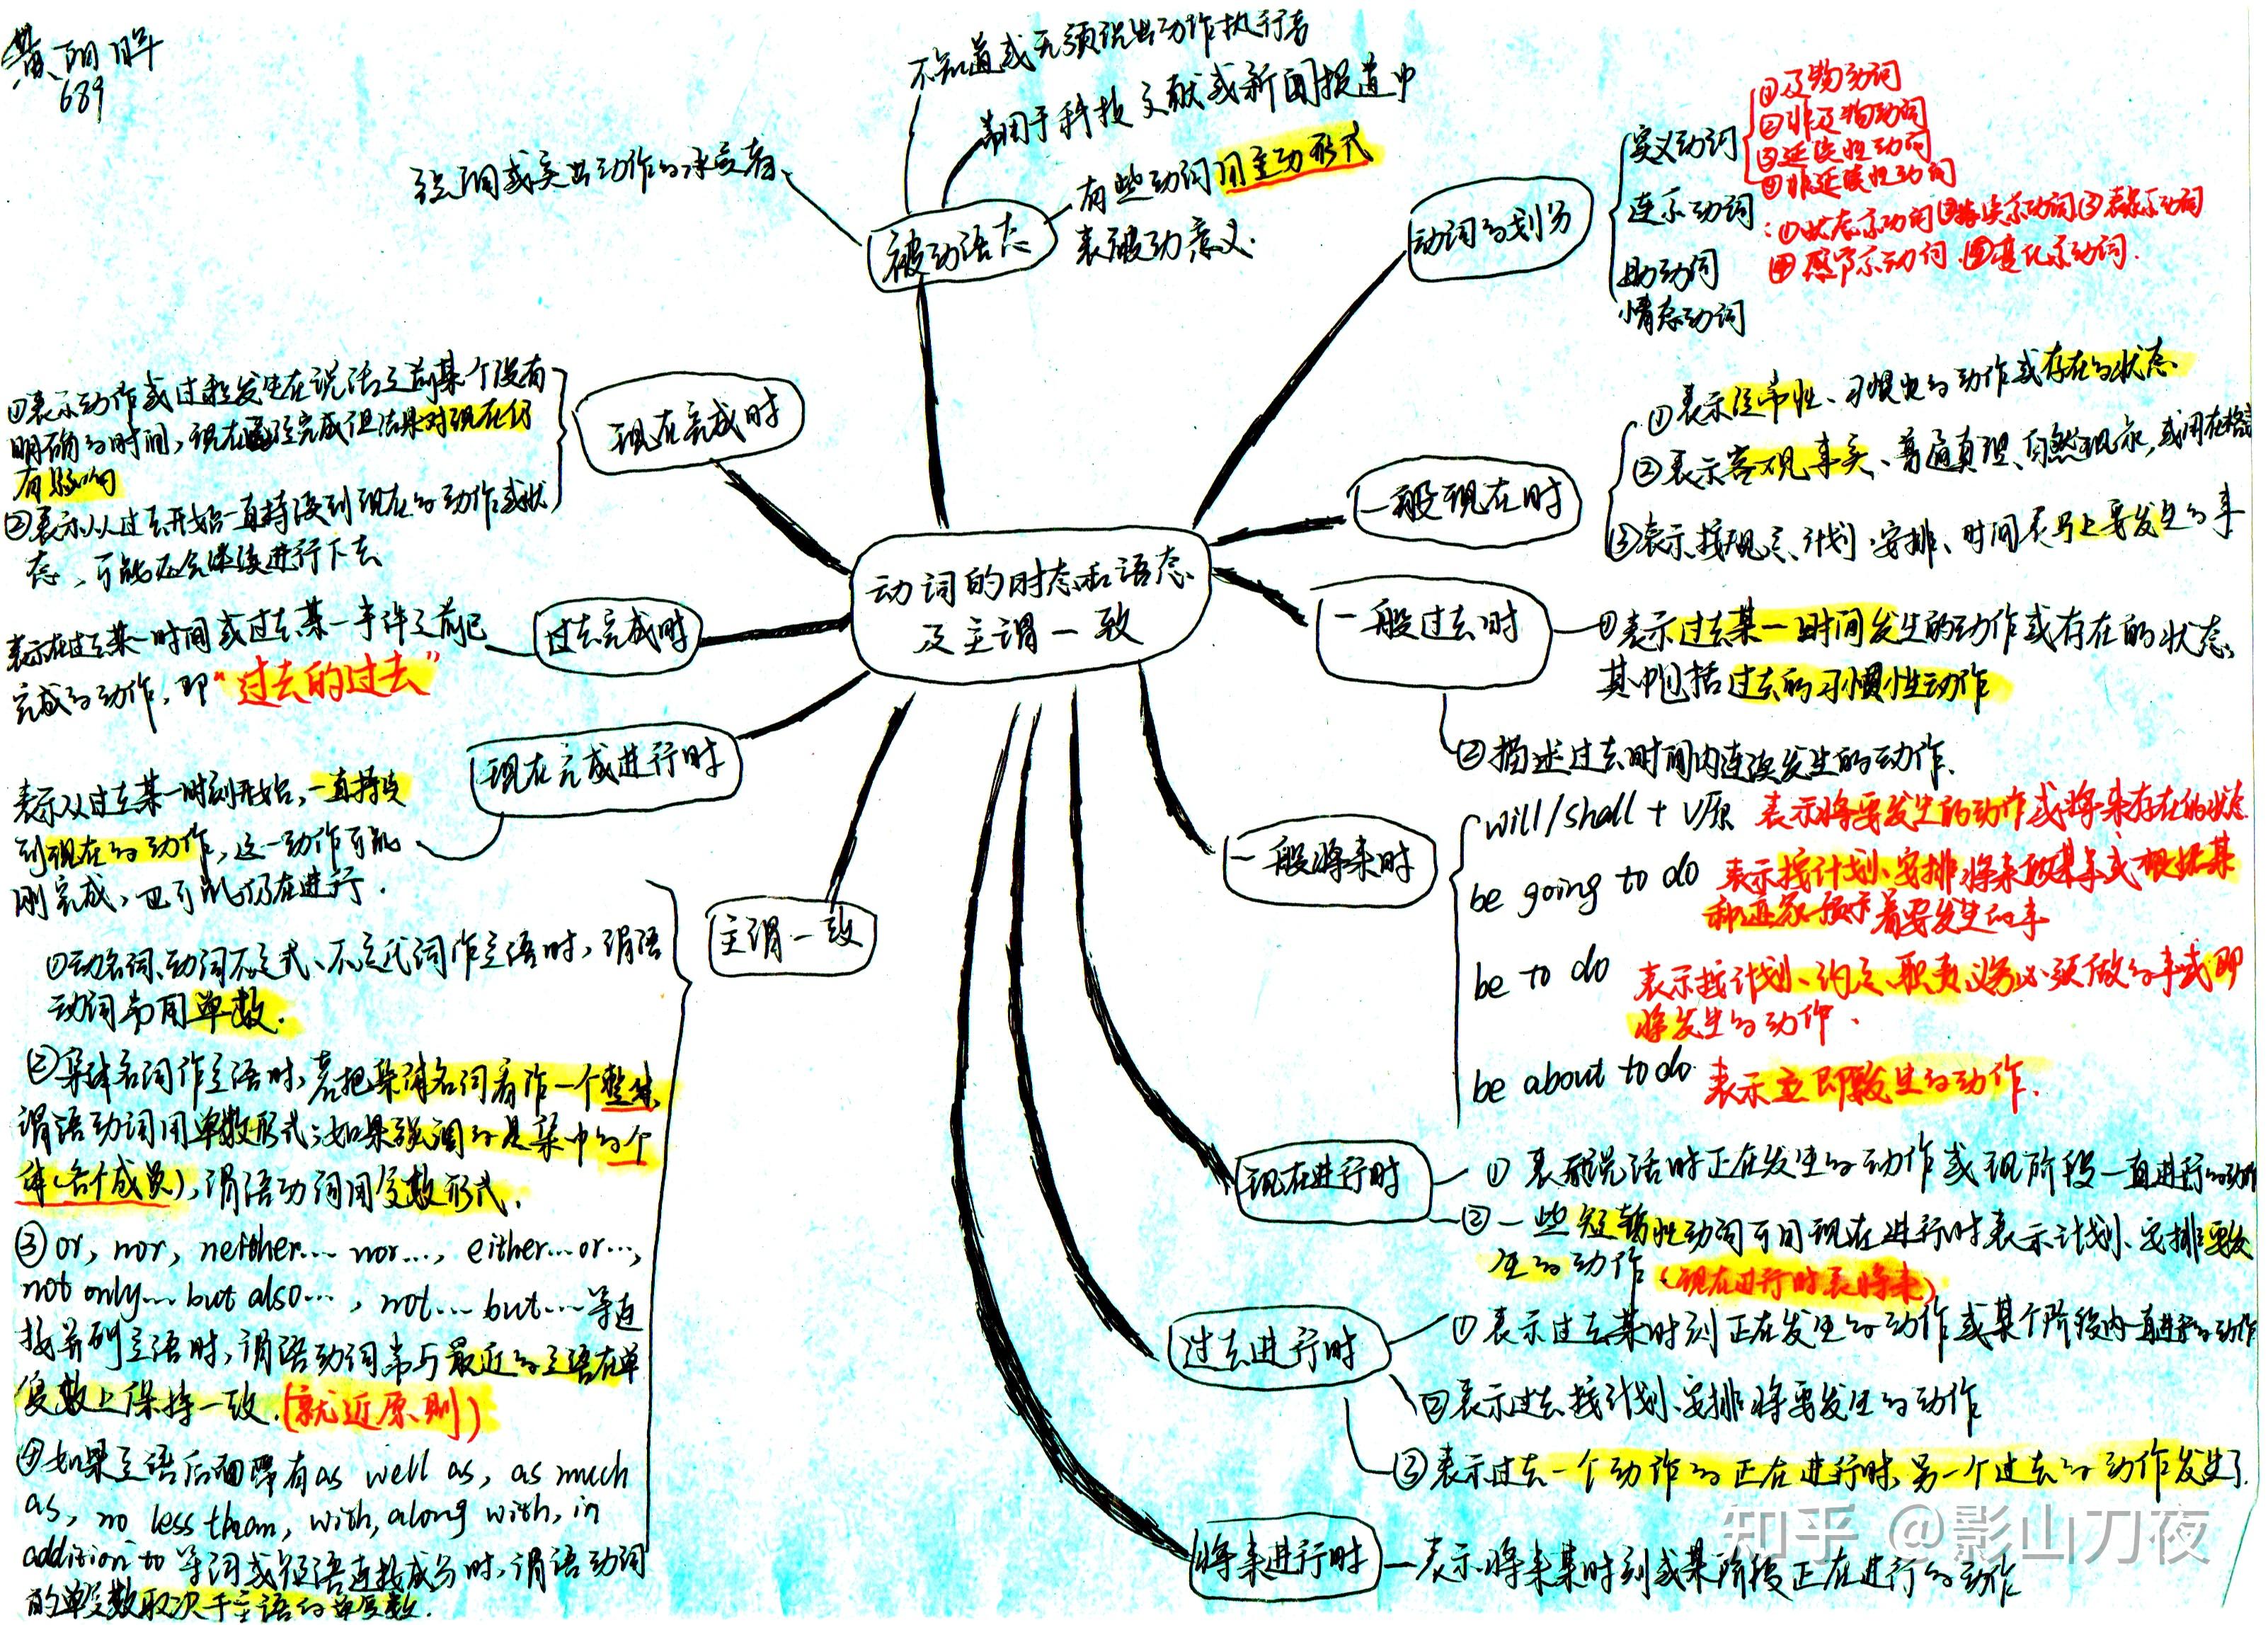 689
不知道或无须说出动作执行者
常用于科技文献或新闻报道中
强调或突出动作的承受者
有些动词用主动形式
表被动意义.
被动语态
动词的划分
实义动词
①及物动词
②非及物动词
③延续性动词
④非延续性动词
连系动词
:①状态系动词②持续系动词③表象系动词
④感官系动词.⑤变化系动词.
助动词
情态动词
现在完成时
①表示动作或过程发生在说话之前某个没有
明确的时间,现在已经完成但结果对现在仍
有影响
②表示从过去开始一直持续到现在的动作或状
态,可能还会继续进行下去
一般现在时
①表示经常性、习惯性的动作或存在的状态
②表示客观事实、普通真理、自然现象,或用在格言
③表示按规定、计划、安排、时间表马上要发生的事
动词的时态和语态
及主谓一致
过去完成时
表示在过去某一时间或过去某一事件之前已
完成的动作,即“过去的过去”
一般过去时
①表示过去某一时间发生的动作或存在的状态,
其中包括过去的习惯性动作
②描述过去时间内连续发生的动作.
现在完成进行时
表示从过去某一时刻开始,一直持续
到现在的动作,这一动作可能
刚完成、也可能仍在进行.
一般将来时
will/shall + V原 表示将要发生的动作或将来存在的状态
be going to do 表示按计划、安排将来做某事或根据某
种迹象预示着要发生的事
be to do 表示按计划、约定、职责、义务必须做的事或即
将发生的动作.
be about to do. 表示立即发生的动作.
主谓一致
①动名词、动词不定式、不定代词作主语时,谓语
动词常用单数.
②集体名词作主语时,若把集体名词看作一个整体,
谓语动词用单数形式;如果强调的是集中的个
体(各个成员),谓语动词用复数形式.
③or, nor, neither... nor..., either...or...,
not only... but also..., not... but...等连
接并列主语时,谓语动词常与最近的主语在单
复数上保持一致.(就近原则)
④如果主语后面带有as well as, as much
as, no less than, with, along with, in
addition to 等词或短语连接成分时,谓语动词
的单复数取决于主语的单复数.
现在进行时
①表示说话时正在发生的动作或现阶段一直进行的动作
②一些短暂性动词可用现在进行时表示计划、安排要发
生的动作(现在进行时表将来)
过去进行时
①表示过去某时刻正在发生的动作或某个阶段内一直进行的动作
②表示过去按计划、安排将要发生的动作
③表示过去一个动作的正在进行时,另一个过去的动作发生了.
将来进行时
表示将来某时刻或某阶段正在进行的动作
知乎 @影山刀夜